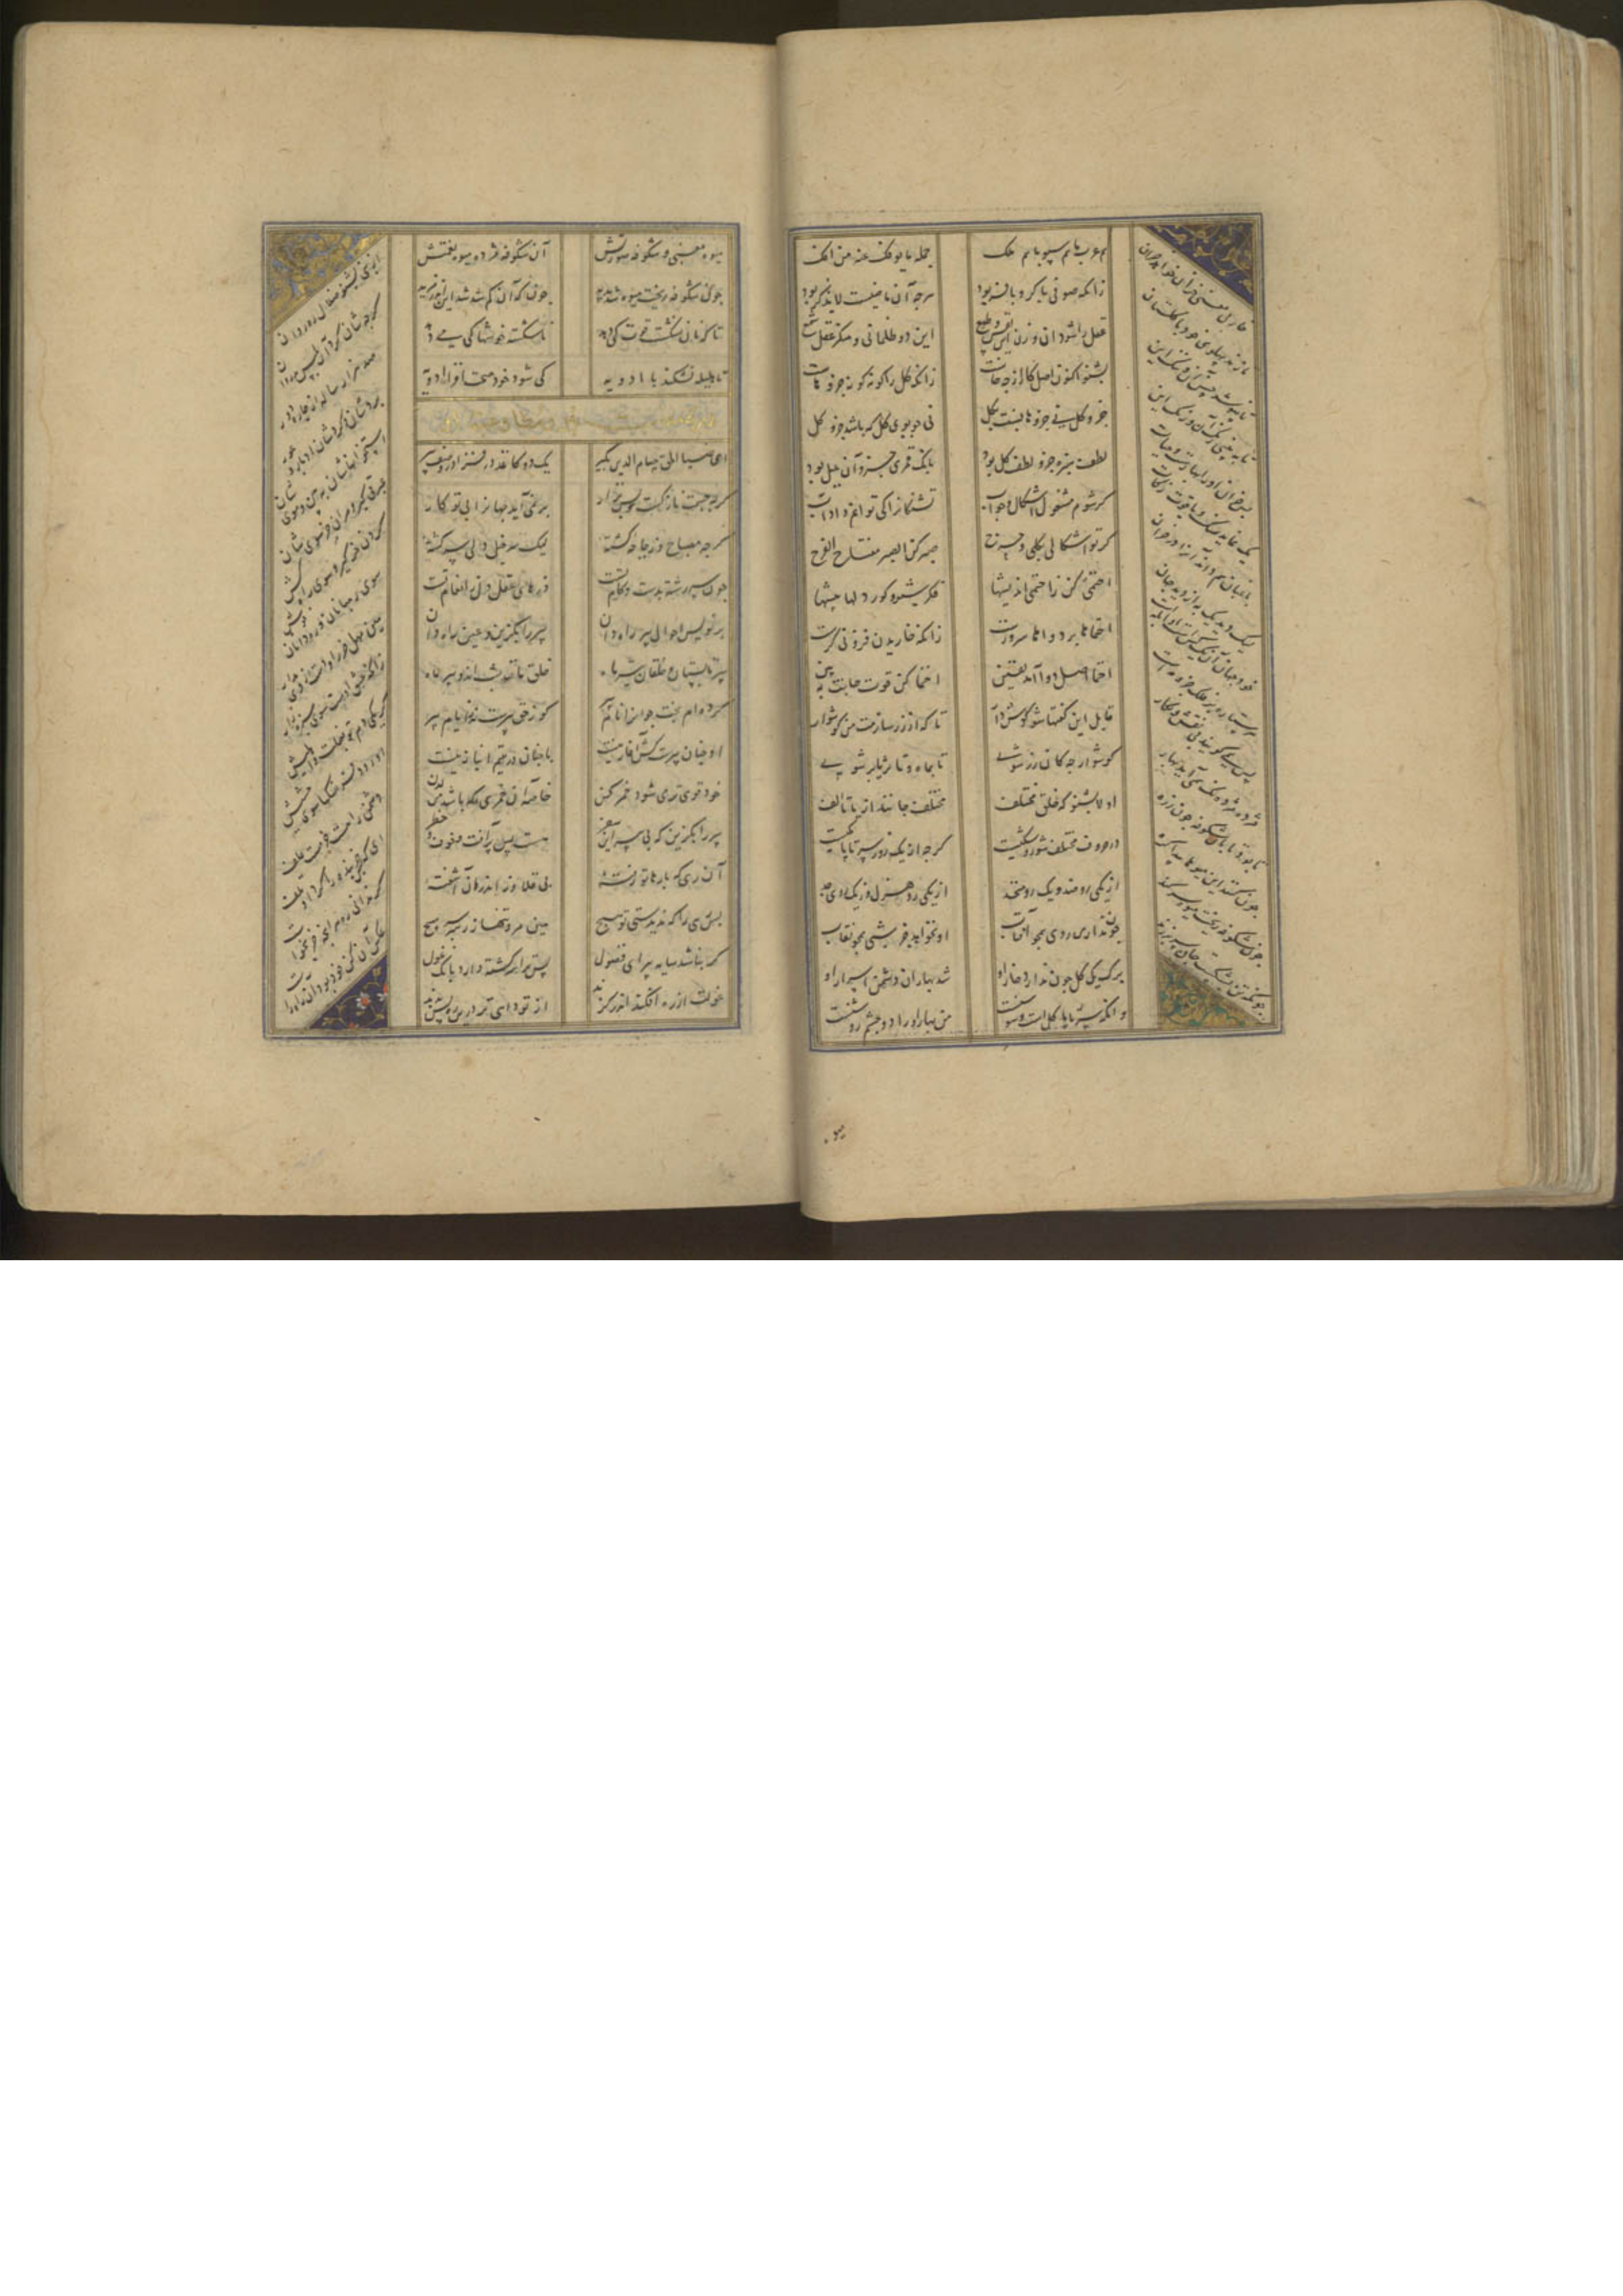 هم عرب ما هم سبو ما هم ملک
جمله ما یوفک عنه من افک
زانکه صوفی با کر و با فر بود
هرچه آن ماضیست لا یذکر بود
عقل را شو دان و زن این نفس و طمع
این دو ظلمانی و منکر عقل شمع
بشنو اکنون اصل انکار از چه خاست
زانکه کل را کونه کونه جزوهاست
جزو کل نی جزوها نسبت بکل
نی چو بوی کل که باشد جزو کل
لطف سبزه جزو لطف کل بود
بانک قمری جزو آن بلبل بود
کر شوم مشغول اشکال و جواب
تشنکانرا کی توانم داد آب
کر تو اشکالی بکلی و حرج
صبر کن الصبر مفتاح الفرج
احتمی کن احتمی ز اندیشها
فکر شیر و کور و دلها بیشها
احتماها بر دواها سرورست
زانکه خاریدن فزونی کرست
احتما اصل دوا آمد یقین
احتما کن قوت جانت ببین
قابل این کفتها شو کوش وار
تا که از زر سازمت من کوشوار
کوشوار چه که کان زر شوی
تا بماه و تا ثریا بر شوی
اولا بشنو که خلق مختلف
مختلف جانند از یا تا الف
در حروف مختلف شور و شکیست
کرچه از یک رو ز سر تا پا یکیست
از یکی رو ضد و یک رو متحد
از یکی رو هزل و از یک روی جد
چون ندارد روی همچو آفتاب
او نخواهد جز شبی همچو نقاب
برک یک کل چون ندارد خار او
شد بهاران دشمن اسرار او
وانکه سر تا پا کل است و سوسنست
پس بهار او را دو چشم روشنست
خار بی معنی خزان خواهد خزان
تا زند پهلوی خود با کلستان
تا بپوشد حسن آن و ننک این
تا نبینی رنک آن و زنک این
پس خزان او را بهارست و حیات
یک نماید سنک و یاقوت زکات
باغبان هم داند آنرا در خزان
لیک دید یک به از دید جهان
خود جهان آن یک کس است او ابلهست
هر ستاره بر فلک جزو مهست
پس همی کویند هر نقش و نکار
مژده مژده نک همی آید بهار
تا بود تابان شکوفه چون زره
چون شکوفه ریخت میوه سر کند
چونکه تن بشکست جان سر بر زند
میوه
میوه معنی و شکوفه صورتش
آن شکوفه مژده میوه نعمتش
چون شکوفه ریخت میوه شد پدید
چون که آن کم شد شد این اندر مزید
تا که نان نشکست قوت کی دهد
ناشکسته خوشها کی می دهد
تا هلیله نشکند با ادویه
کی شود خود صحت افزا ادویه
ای ضیاء الحق حسام الدین بکیر
یک دو کاغذ در فزا در وصف پیر
کرچه جسم نازکت را زور نیست
کرچه مصباح و زجاجه کشته
لیک سرخیل دلی سررشته
چون سررشته بدست و کام تست
درهای عقد دل ز انعام تست
بر نویس احوال پیر راه دان
پیر را بکزین و عین راه دان
پیر تابستان و خلقان تیر ماه
خلق مانند شب اند و پیر ماه
کرده ام بخت جوانرا نام پیر
کو ز حق پیرست نه از ایام پیر
او چنان پیرست کش آغاز نیست
با چنان در یتیم انباز نیست
خود قوی تر می شود خمر کهن
خاصه آن خمری که باشد من لدن
پیر را بکزین که بی پیر این سفر
هست بس پر آفت و خوف و خطر
آن رهی که بارها تو رفته
بی قلاوز اندر آن آشفته
پس رهی را که ندیدستی تو هیچ
هین مرو تنها ز رهبر سر مپیچ
کر نباشد سایه پیر ای فضول
پس ترا سرکشته دارد بانک غول
غولت از ره افکند اندر کزند
از تو داهی تر درین ره بس بدند
از نبی بشنو ضلال ره روان
که چه شان کرد آن بلیس بد روان
صد هزاران ساله راه از جاده دور
بردشان و کردشان ادبار و عور
استخوانهاشان ببین و مویشان
عبرتی کیر و مران خر سویشان
کردن خر کیر و سوی راه کش
سوی ره بانان و ره دانان خوش
هین مهل خر را و دست از وی مدار
زانکه عشق اوست سوی سبزه زار
کر یکی دم تو بغفلت وا هلیش
او رود فرسنکها سوی حشیش
دشمن راهست خر مست علف
ای که بس خربنده را کرد او تلف
کر ندانی ره هر آنچه خر بخواست
عکس آن کن خود بود آن راه راست